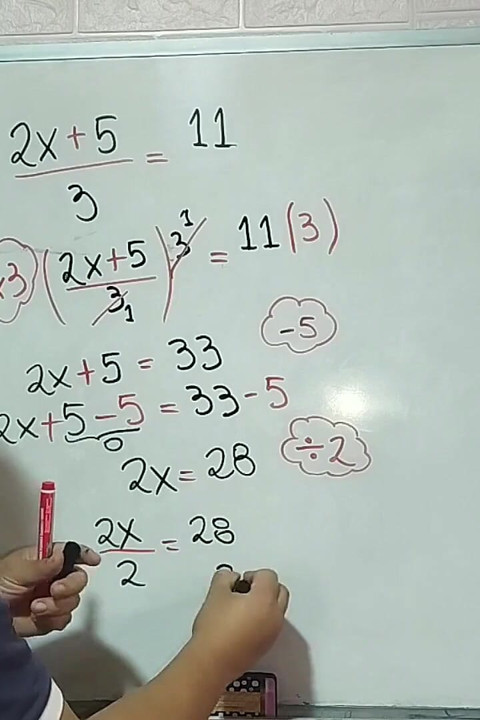 (2x+5)/3 = 11
x3 ((2x+5)/3 1) 3 1 = 11(3)
2x+5 = 33 -5
2x+5-5 = 33-5
0
2x = 28 ÷2
2x/2 = 28